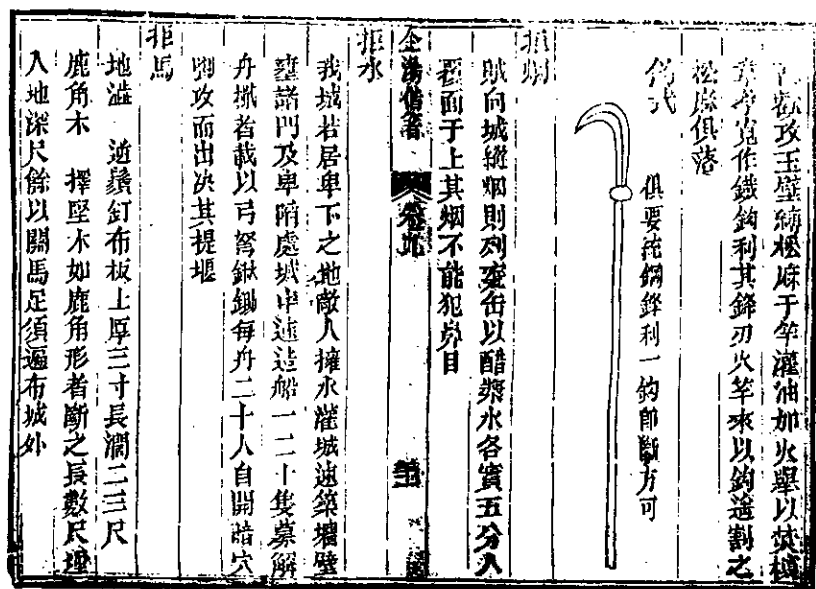 歡攻玉壁縛松麻于竿灌油加火舉以焚樓
韋孝寬作鐵鉤利其鋒刃火竿來以鉤遙割之
松麻俱落
鉤式
俱要純鋼鋒利一鉤卽斷方可
拒烟
賊向城縱烟則列瓮缶以醋漿水各實五分人
覆面于上其烟不能犯鼻目
金湯借箸
卷九
拒水
我城若居卑下之地敵人擁水灌城速築墻壁
壅諸門及卑陷處城中速造船一二十隻募解
舟檝者載以弓弩鍬鋤每舟二十人自開暗穴
攻而出決其提堰
拒馬
地澁 逆鬚釘布板上厚三寸長濶二三尺
鹿角木 擇堅木如鹿角形者斷之長數尺埋
入地深尺餘以閡馬足須遍布城外